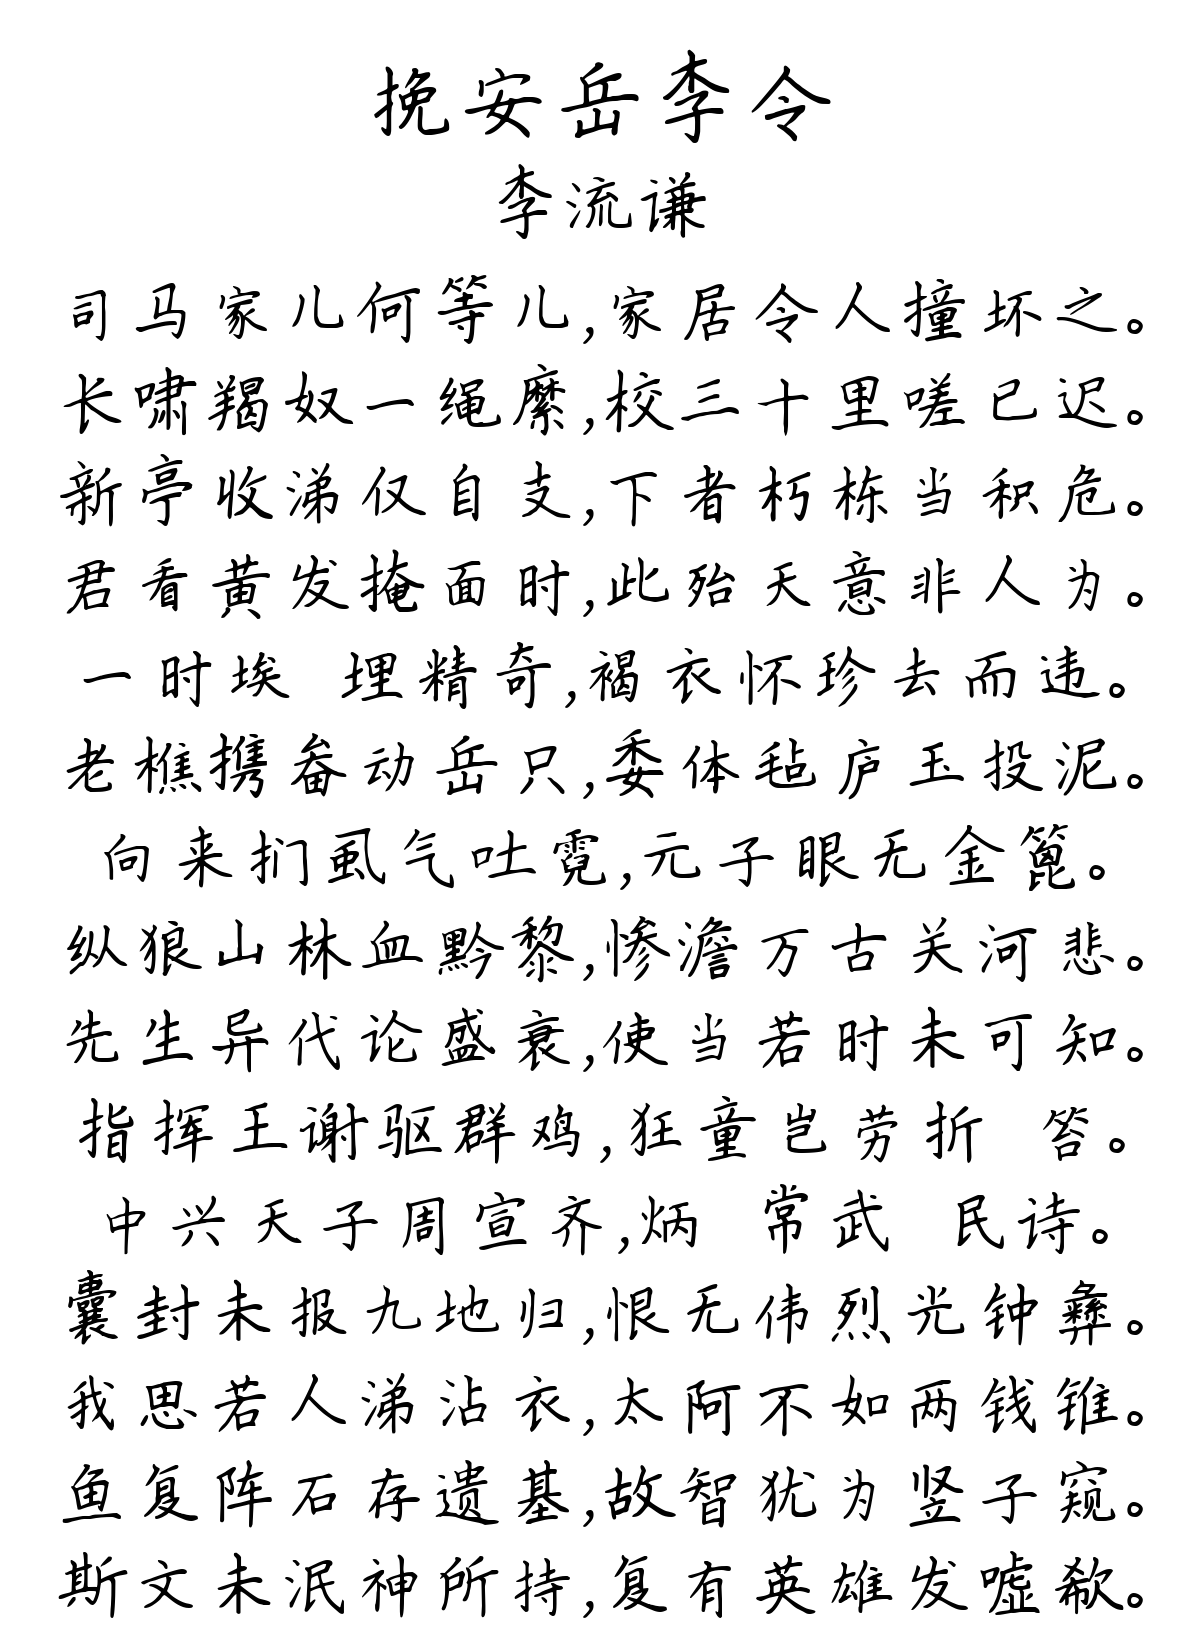 挽安岳李令
李流谦
司马家儿何等儿,家居令人撞坏之。
长啸羯奴一绳縻,校三十里嗟已迟。
新亭收涕仅自支,下者朽栋当积危。
君看黄发掩面时,此殆天意非人为。
一时埃 埋精奇,褐衣怀珍去而违。
老樵携畚动岳只,委体毡庐玉投泥。
向来扪虱气吐霓,元子眼无金篦。
纵狼山林血黔黎,惨澹万古关河悲。
先生异代论盛衰,使当若时未可知。
指挥王谢驱群鸡,狂童岂劳折 笞。
中兴天子周宣齐,炳 常武 民诗。
囊封未报九地归,恨无伟烈光钟彝。
我思若人涕沾衣,太阿不如两钱锥。
鱼复阵石存遗基,故智犹为竖子窥。
斯文未泯神所持,复有英雄发嘘欷。